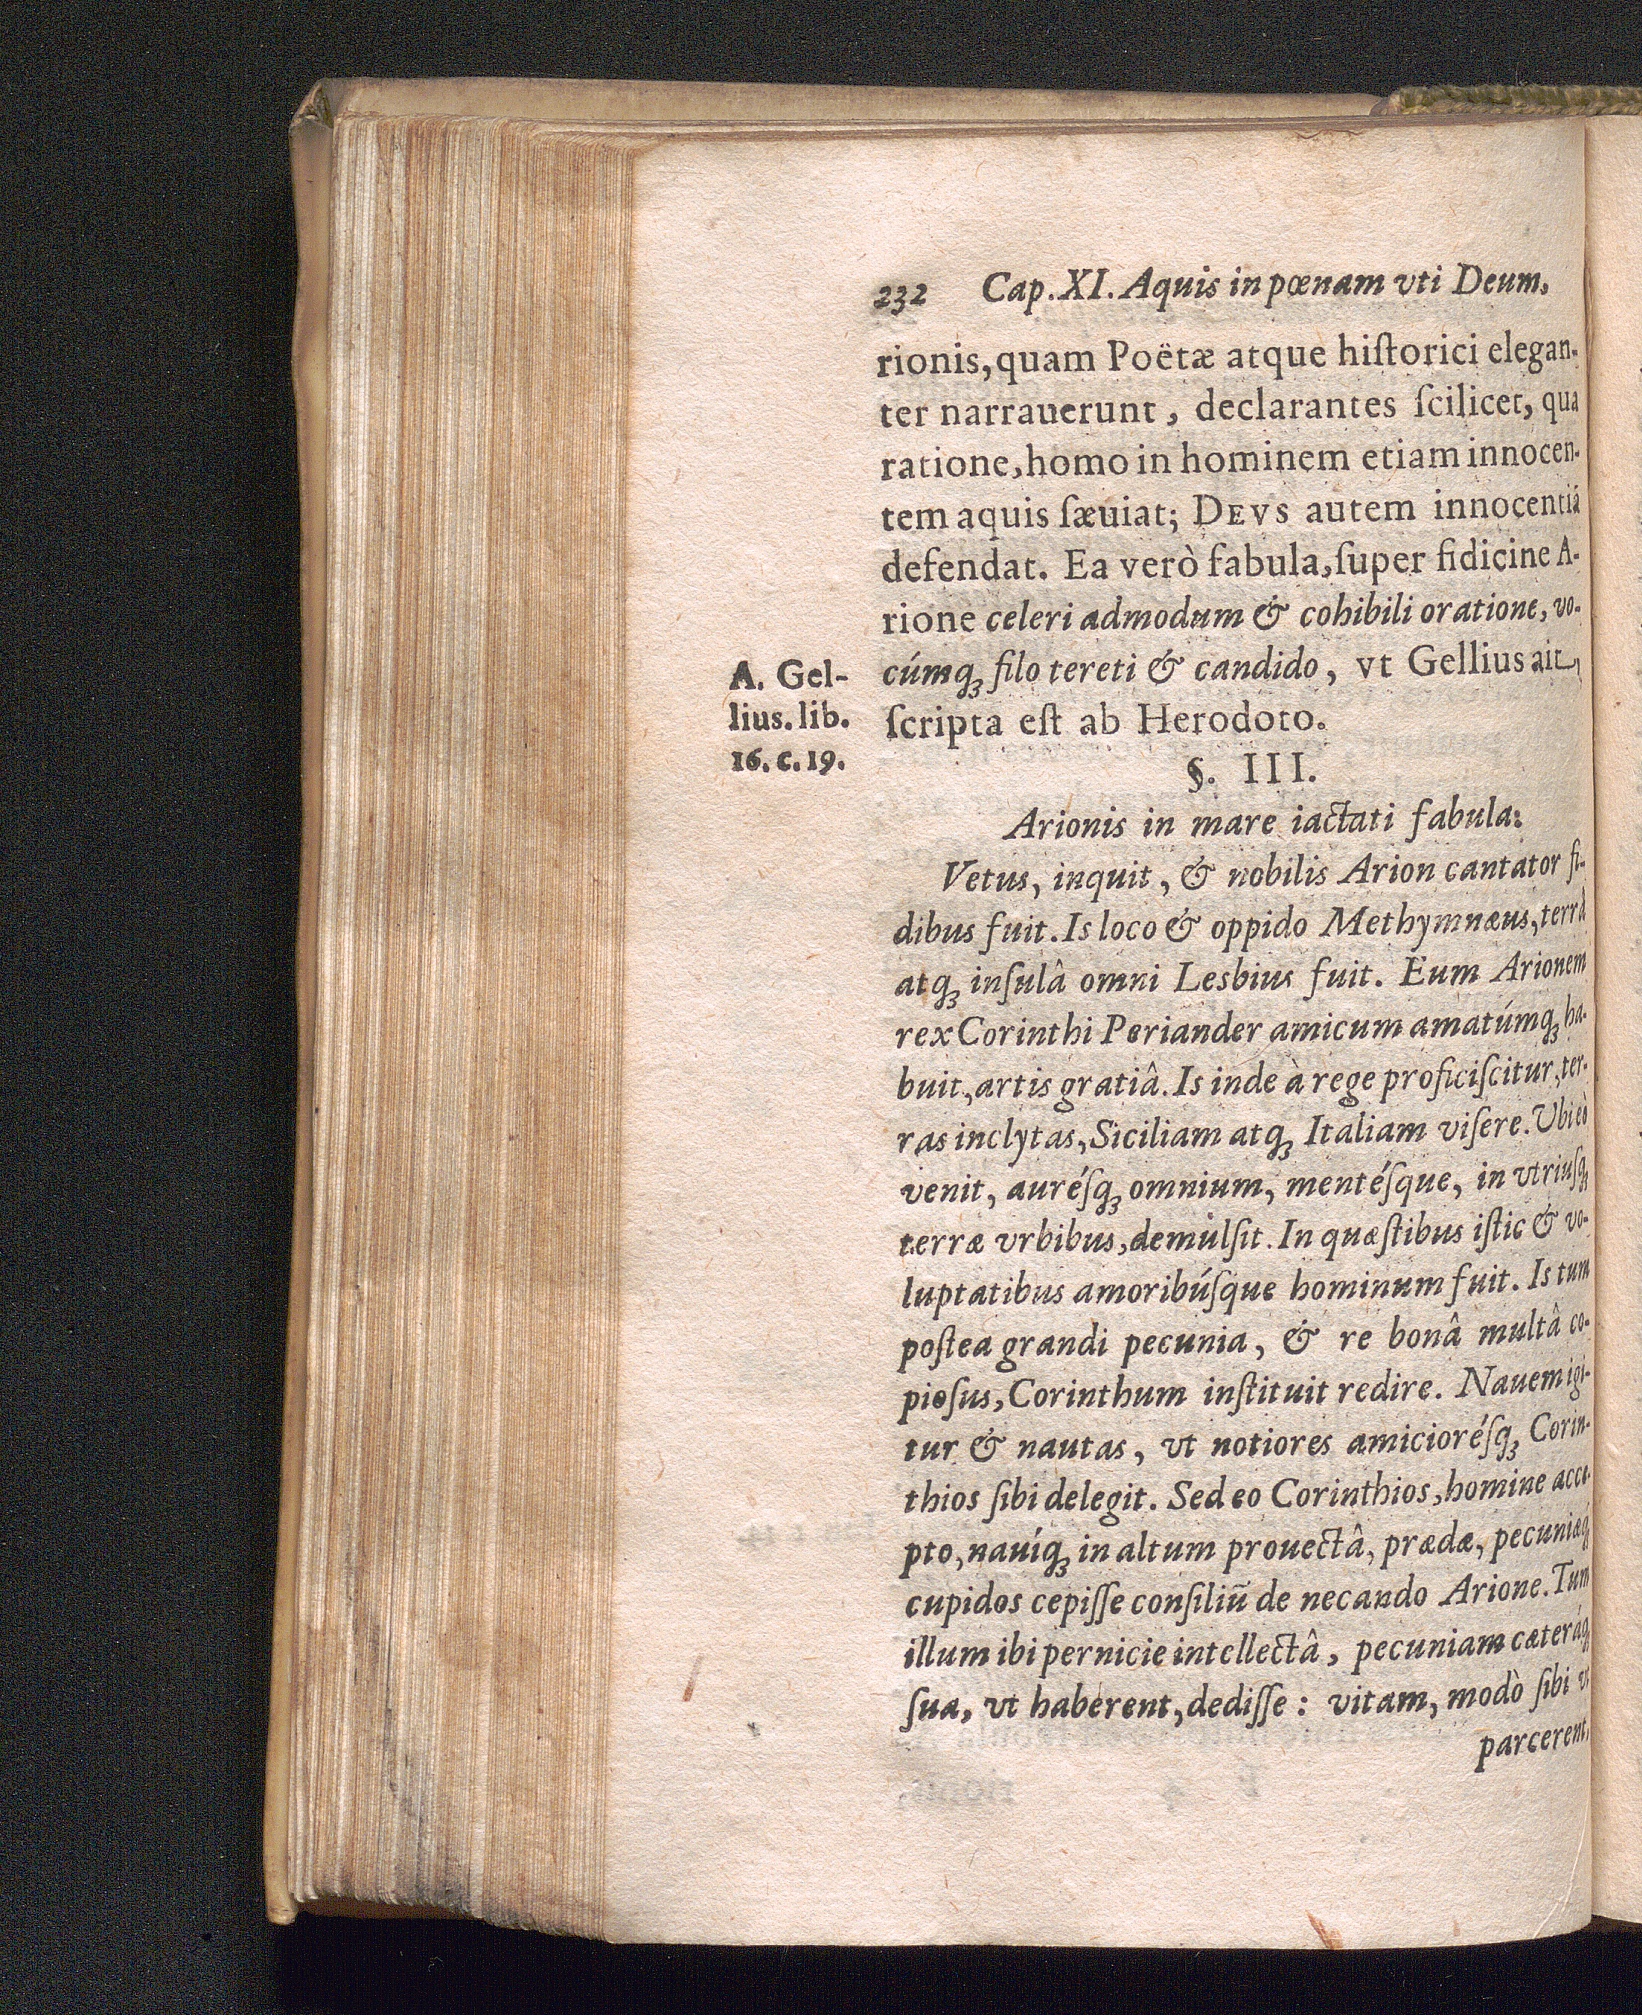 232 Cap. XI. Aquis in pœnam vti Deum.
rionis, quam Poëtæ atque hiſtorici elegan-
ter narrauerunt, declarantes ſcilicet, qua
ratione, homo in hominem etiam innocen-
tem aquis ſæuiat; DEVS autem innocentiã
defendat. Ea verò fabula, ſuper fidicine A-
rione celeri admodum & cohibili oratione, vo-
cúmq́ꝫ filo tereti & candido, vt Gellius ait,
ſcripta eſt ab Herodoto.
A. Gel-
lius. lib.
16. c. 19.
§. III.
Arionis in mare iactati fabula:
Vetus, inquit, & nobilis Arion cantator fi-
dibus fuit. Is loco & oppido Methymnæus, terrâ
atqꝫ inſulâ omni Lesbius fuit. Eum Arionem
rex Corinthi Periander amicum amatúmqꝫ ha-
buit, artis gratiâ. Is inde à rege proficiſcitur, ter-
ras inclytas, Siciliam atqꝫ Italiam viſere. Vbi eò
venit, auréſqꝫ omnium, mentéſque, in vtriuſqꝫ
terræ vrbibus, demulſit. In quæſtibus iſtic & vo-
luptatibus amoribúſque hominum fuit. Is tum
poſtea grandi pecunia, & re bonâ multâ co-
pioſus, Corinthum inſtituit redire. Nauem igi-
tur & nautas, vt notiores amicioréſqꝫ Corin-
thios ſibi delegit. Sed eo Corinthios, homine acce-
pto, nauíqꝫ in altum prouectâ, prædæ, pecuniæqꝫ
cupidos cepiſſe conſiliũ de necando Arione. Tum
illum ibi pernicie intellectâ, pecuniam cæteráqꝫ
ſua, vt haberent, dediſſe: vitam, modò ſibi vt
parcerent,